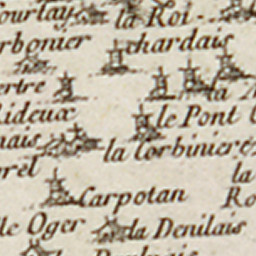 ourlay la Roi
rbonier chardais
ertre
Rideux le Pont
nais la Corbiniere
rel la
Carpotan Ro
le Oger la Denilais